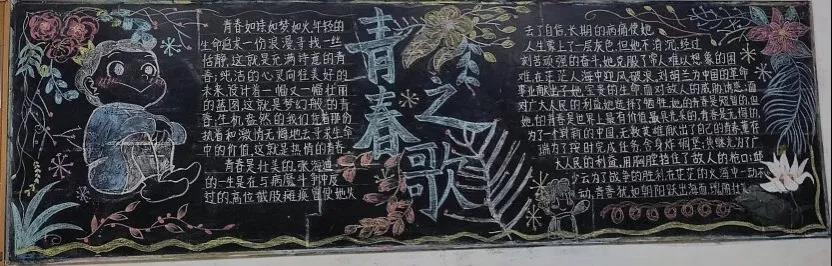 青春之歌
青春如诗如梦如火年轻的
生命追求一份浪漫寻找一丝
恬静,这就是充满诗意的青
春;纯洁的心灵向往美好的
未来,设计着一幅又一幅壮丽
的蓝图这就是梦幻般的青
春;生机盎然的我们凭着那份
执着和激情无悔地去寻求生命
中的价值,这就是热情的青春。
青春是壮美的,张海迪
的一生是在与病魔斗争中度
过的,高位截肢摊痪曾使她失
去了自信,长期的病痛使她
人生蒙上了一层灰色,但她不消沉,经过
刻苦顽强的奋斗,她克服了常人难以想象的困
难,在茫茫人海中迎风破浪,刘胡兰为中国的革命
事业献出了她宝贵的生命面对敌人的威胁诱惑,面
对广大人民的利益她选择了牺牲,她的青春是短暂的,但
她的青春是世界上最有价值最具光彩的,青春是无悔的,
为了一个新的中国,无数英雄献出了自己的青春,董存
瑞为了按时完成任务,舍身炸碉堡;黄继光为了广
大人民的利益,用胸膛挡住了敌人的枪口;邱
少云为了战争的胜利,在茫茫的火海中一动不
动,青春犹如朝阳跃出海面,绚丽壮